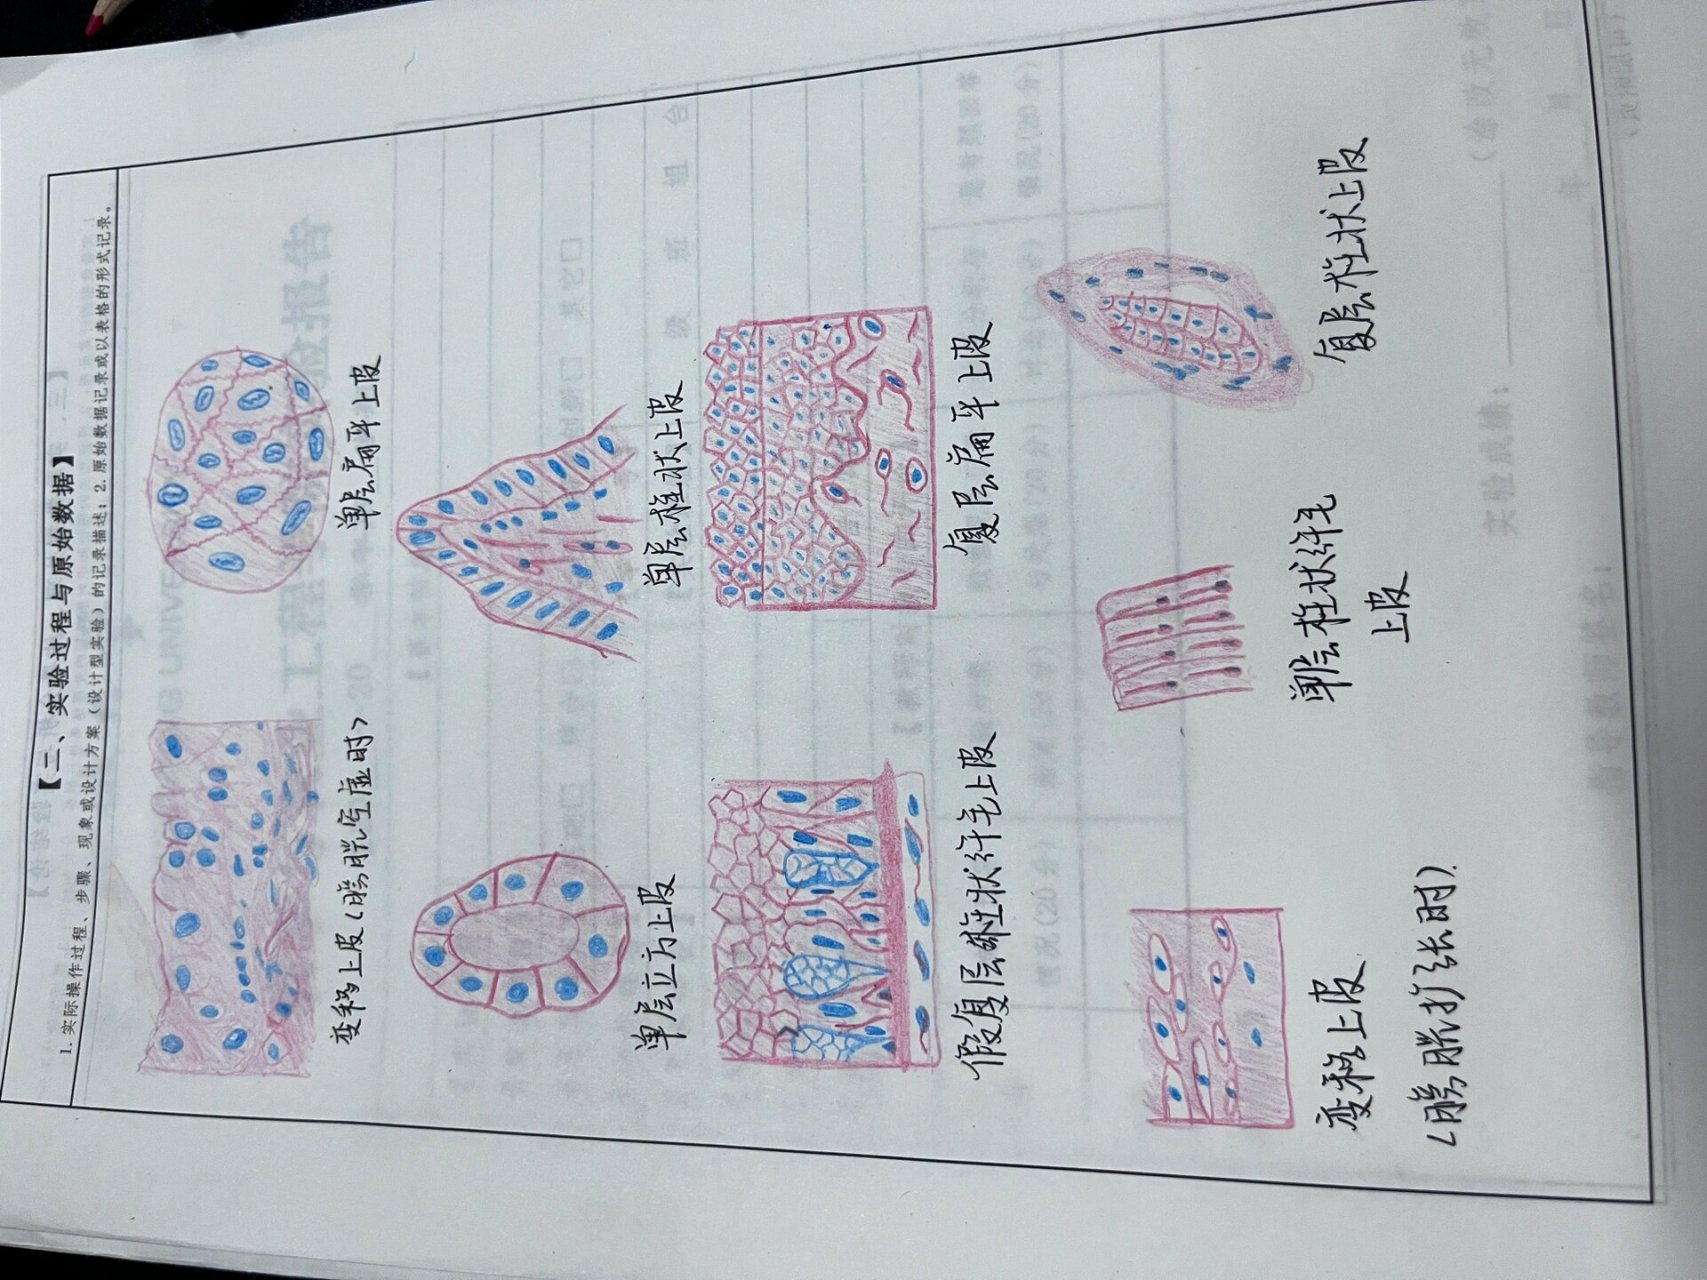 【二、实验过程与原始数据】
1. 实际操作过程、步骤、现象或设计方案（设计型实验）的记录描述；2. 原始数据记录或以表格的形式记录。
变移上皮（膀胱空虚时）
单层扁平上皮
单层立方上皮
单层柱状上皮
假复层柱状纤毛上皮
复层扁平上皮
变移上皮
（膀胱扩张时）.
单层柱状纤毛
上皮
复层柱状上皮